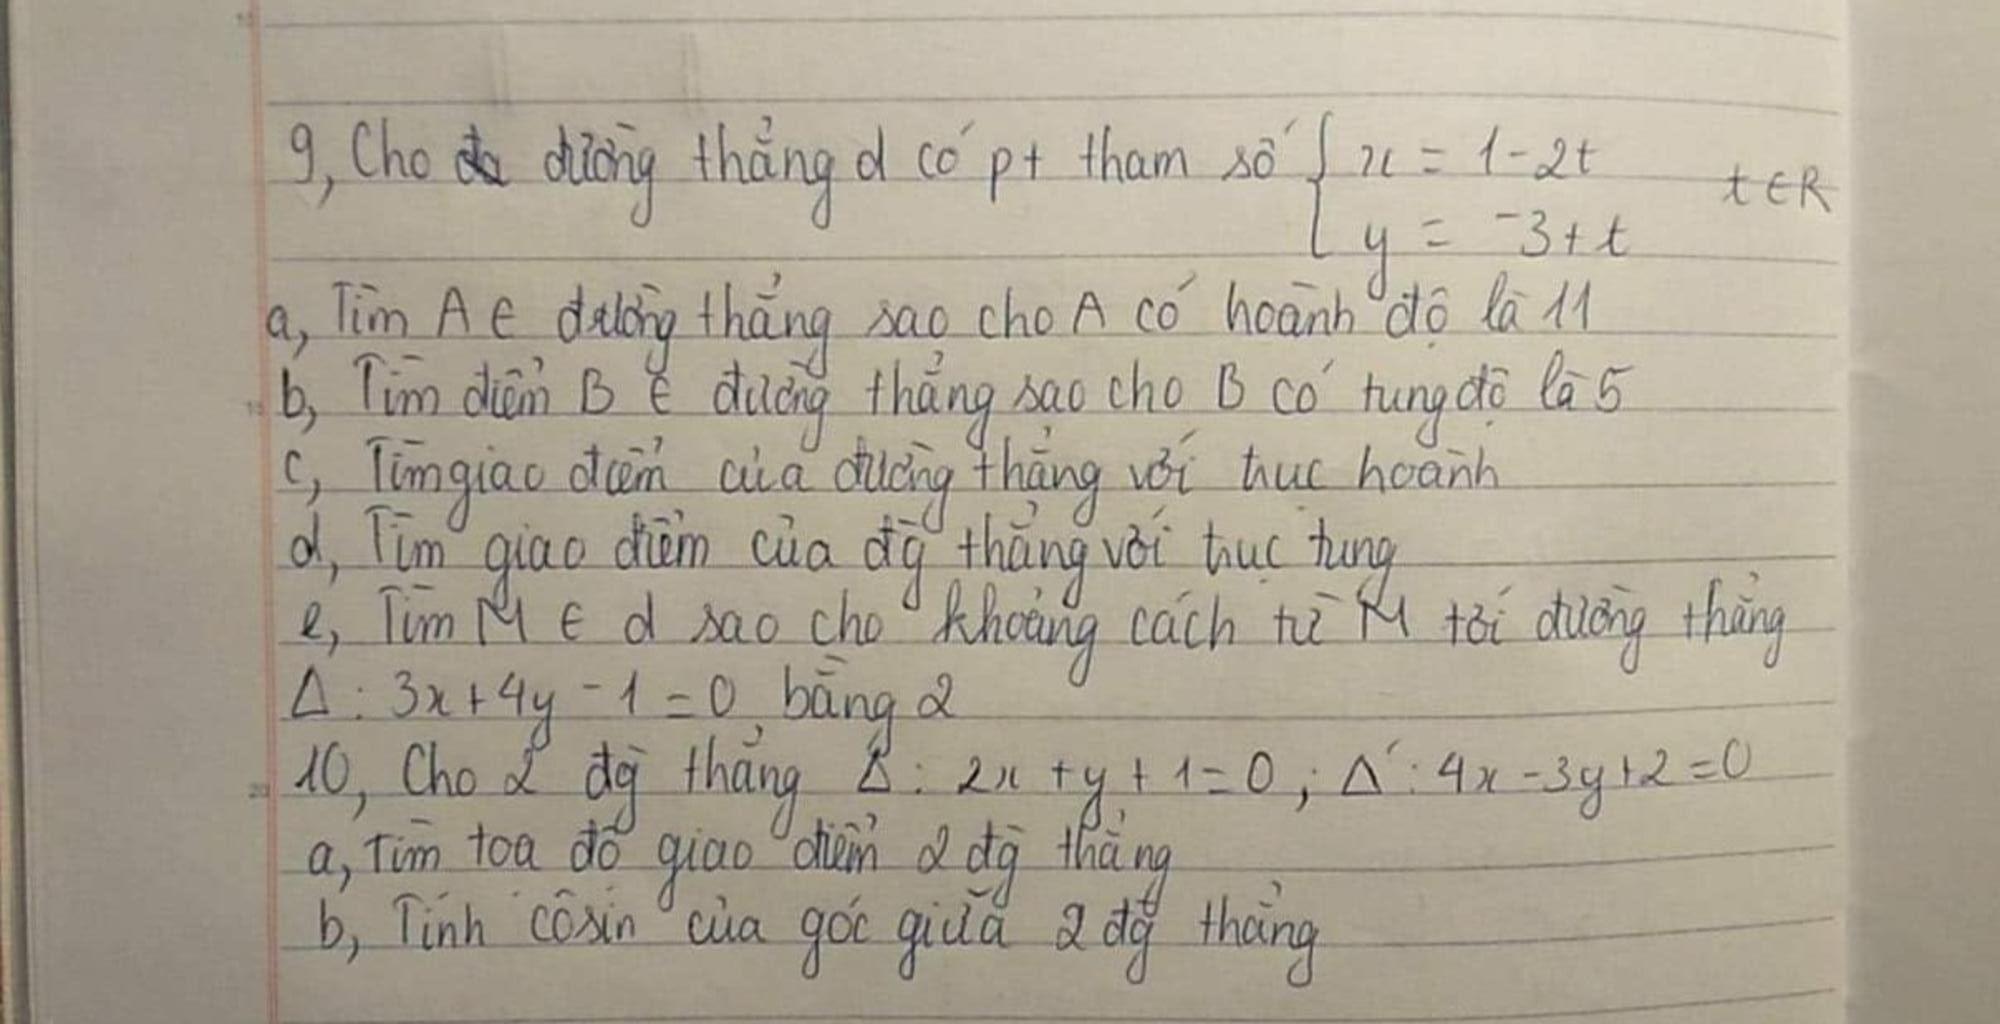 9, Cho đường thẳng d có pt tham số { x = 1 - 2t t ∈ R
y = -3 + t
a, Tìm A ∈ đường thẳng sao cho A có hoành độ là 11
b, Tìm điểm B ∈ đường thẳng sao cho B có tung độ là 5
c, Tìm giao điểm của đường thẳng với trục hoành
d, Tìm giao điểm của đg thẳng với trục tung
e, Tìm M ∈ d sao cho khoảng cách từ M tới đường thẳng
Δ : 3x + 4y - 1 = 0 bằng 2
10, Cho 2 đg thẳng Δ : 2x + y + 1 = 0 ; Δ' : 4x - 3y + 2 = 0
a, Tìm toạ độ giao điểm 2 đg thẳng
b, Tính côsin của góc giữa 2 đg thẳng